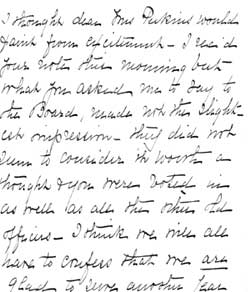 I thought dear Mrs Perkins would
faint from excitement – I read
your note this morning but
what you asked me to say to
the Board, made not the slight-
est impression – they did not
seem to consider it worth a
thought & you were voted in
as well as all the other old
officers – I think we will all
have to confess that we are
glad to serve another year